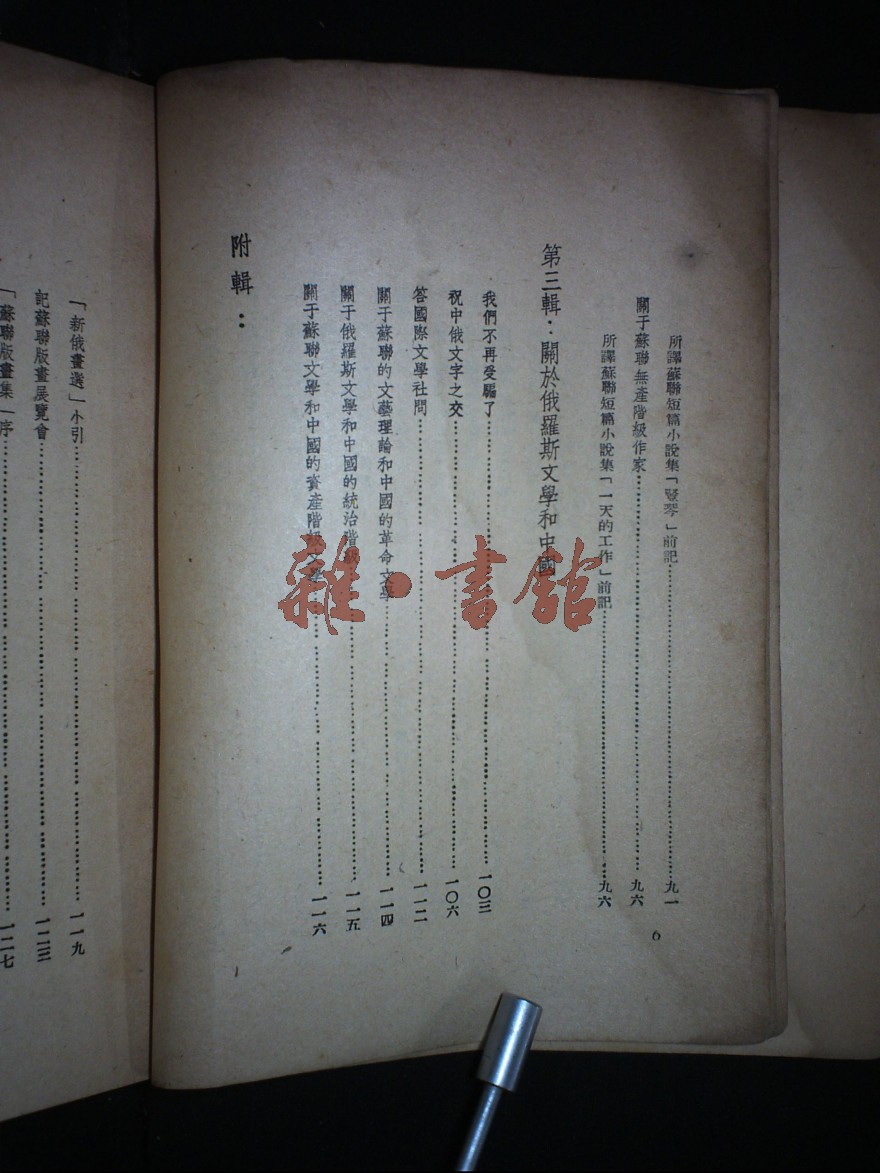 所譯蘇聯短篇小說集「豎琴」前記……九一
關于蘇聯無產階級作家……九六
所譯蘇聯短篇小說集「一天的工作」前記……九六
第三輯：關於俄羅斯文學和中國
我們不再受騙了……一〇三
祝中俄文字之交……一〇六
答國際文學社問……一一二
關于蘇聯的文藝理論和中國的革命文學……一一四
關于俄羅斯文學和中國的統治階級……一一五
關于蘇聯文學和中國的資產階級文學……一一六
附輯：
6
「新俄畫選」小引……一一九
記蘇聯版畫展覽會……一二三
「蘇聯版畫集」序……一二七
雜·書館